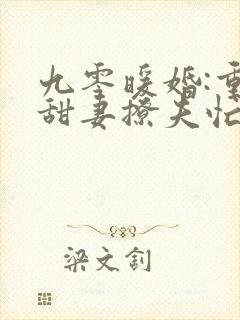 九零暖婚:重
甜妻撩夫忙
梁文钊